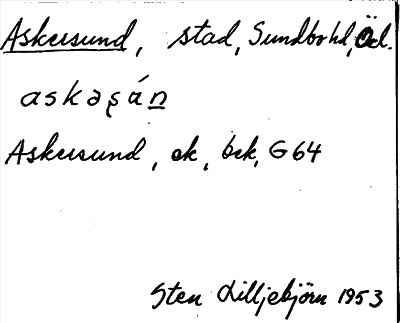 Askersund, stad, Sundbo hd, Öd.
askəʂán
Askersund, ek, bek, G 64
Sten Lilljebjörn 1953